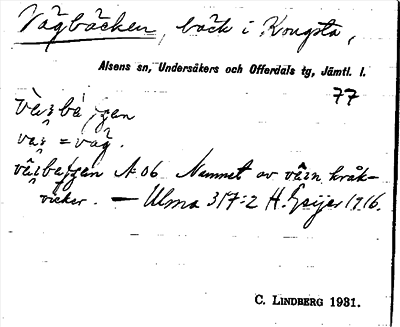 Vågbäcken, bäck i Kougsta,
Alsens sn, Undersåkers och Offerdals tg, Jämtl. l.
77
= våg.
N 06 Namnet av kråk-
vicker. — Ulma 317:2 H. Geijer 1916.
C. LINDBERG 1931.